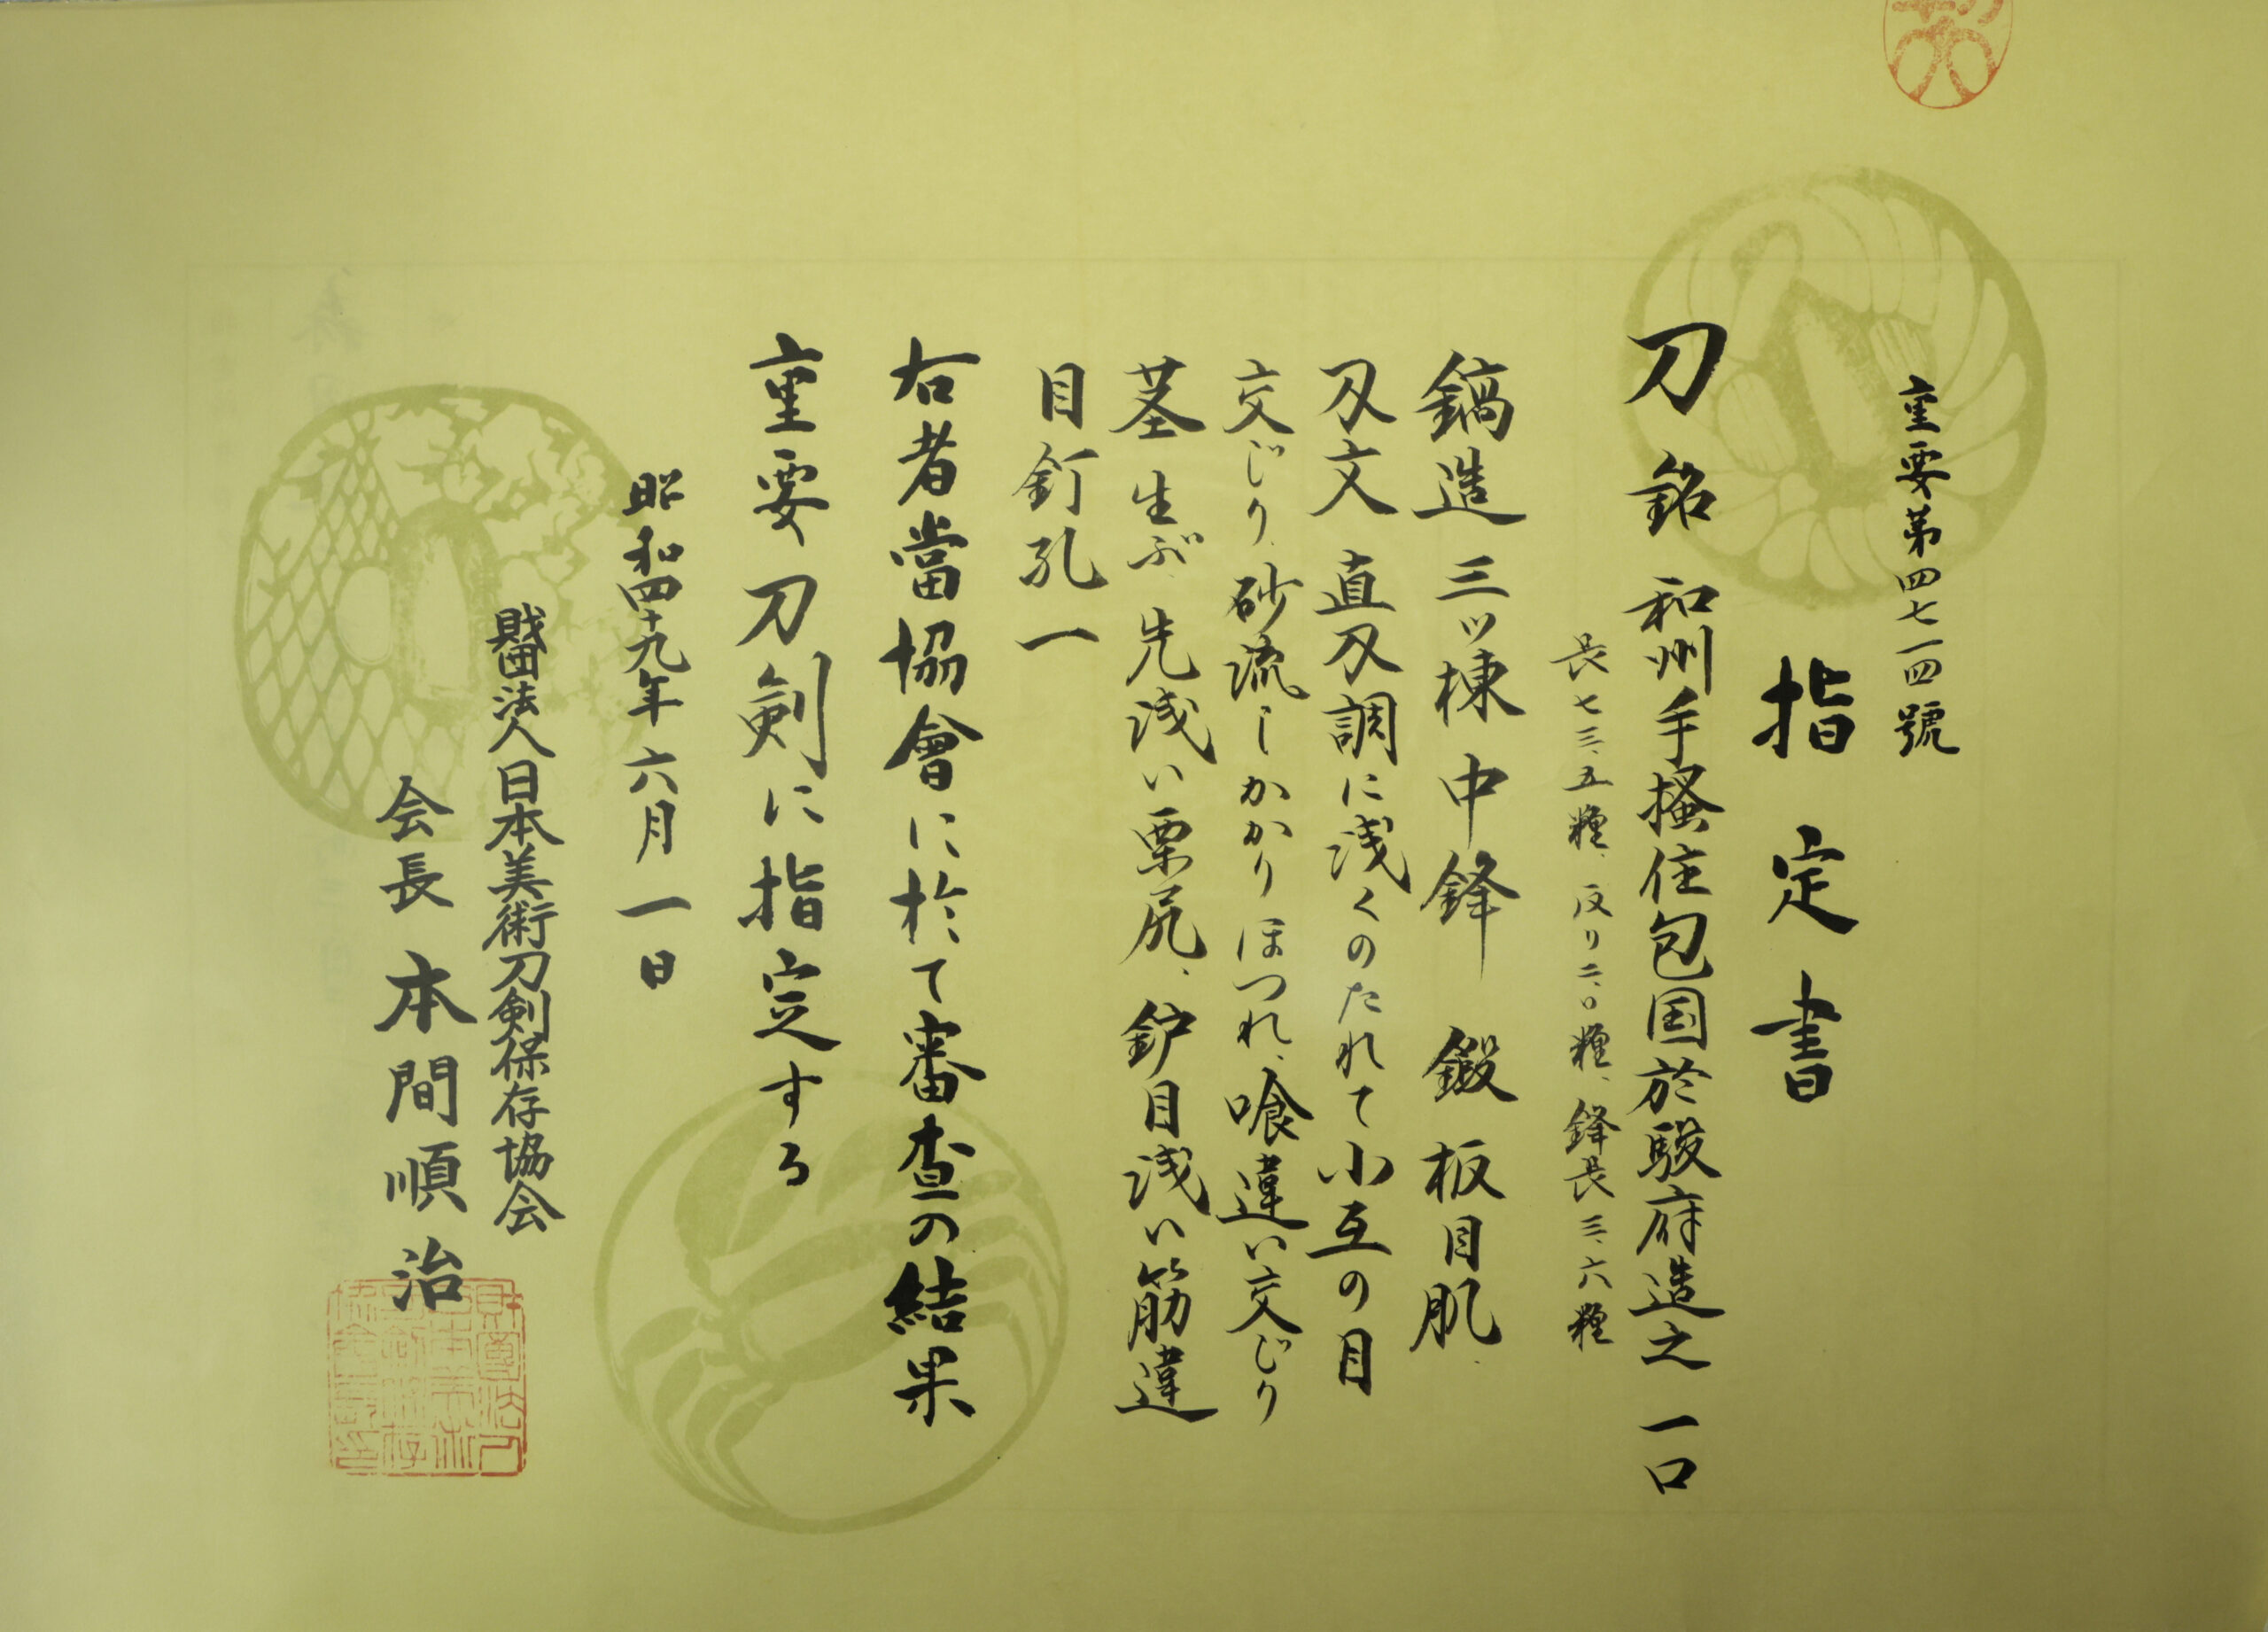 重要第四七一四號
指定書
刀 銘 和州手掻住包国於駿府造之 一口
長七三、五糎、反り二、〇糎、鋒長三、六糎
鎬造 三ッ棟 中鋒 鍛 板目肌、
刃文 直刃調に浅くのたれて小互の目
交じり、砂流しかかりほつれ、喰違い交じり
茎 生ぶ、先浅い栗尻、鈩目浅い筋違
目釘孔一
右者當協會に於て審査の結果
重要刀剣に指定する
昭和四十九年六月一日
財団法人日本美術刀剣保存協会
会長 本間順治